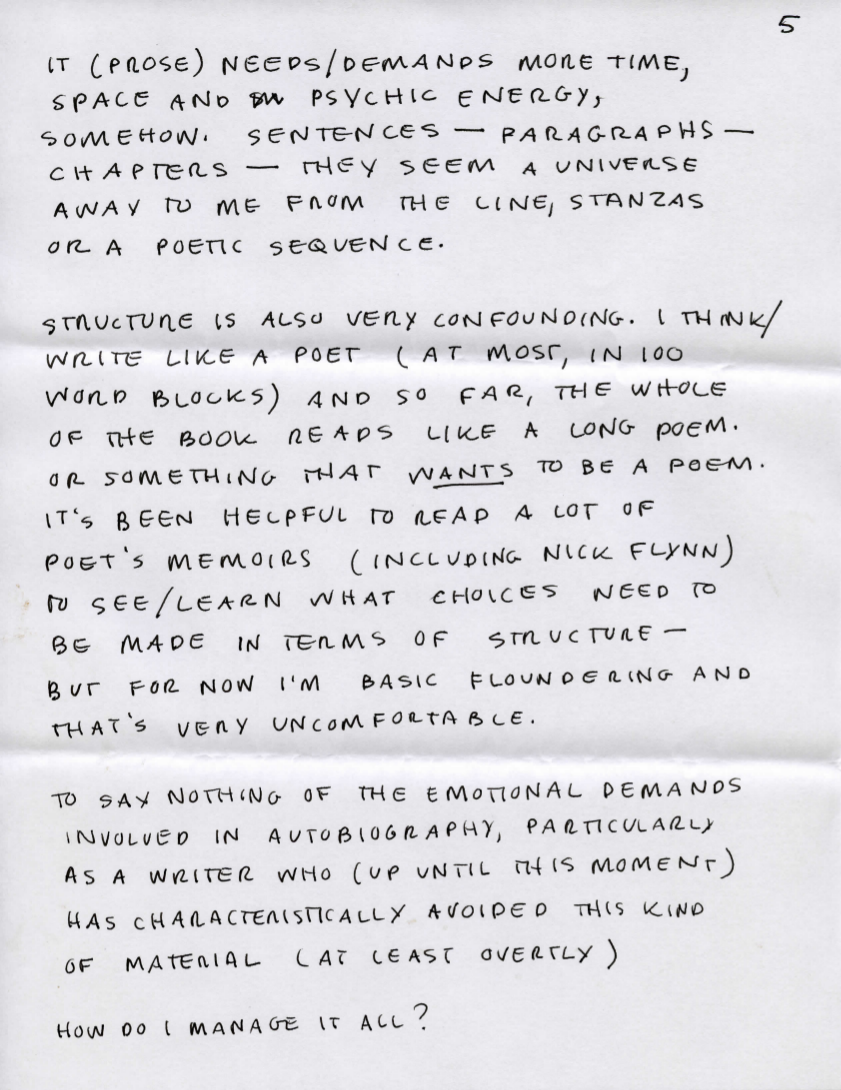 5
IT (PROSE) NEEDS/DEMANDS MORE TIME,
SPACE AND PSYCHIC ENERGY,
SOMEHOW. SENTENCES — PARAGRAPHS —
CHAPTERS — THEY SEEM A UNIVERSE
AWAY TO ME FROM THE LINE, STANZAS
OR A POETIC SEQUENCE.
STRUCTURE IS ALSO VERY CONFOUNDING. I THINK/
WRITE LIKE A POET (AT MOST, IN 100
WORD BLOCKS) AND SO FAR, THE WHOLE
OF THE BOOK READS LIKE A LONG POEM.
OR SOMETHING THAT WANTS TO BE A POEM.
IT'S BEEN HELPFUL TO READ A LOT OF
POET'S MEMOIRS (INCLUDING NICK FLYNN)
TO SEE/LEARN WHAT CHOICES NEED TO
BE MADE IN TERMS OF STRUCTURE —
BUT FOR NOW I'M BASIC FLOUNDERING AND
THAT'S VERY UNCOMFORTABLE.
TO SAY NOTHING OF THE EMOTIONAL DEMANDS
INVOLVED IN AUTOBIOGRAPHY, PARTICULARLY
AS A WRITER WHO (UP UNTIL THIS MOMENT)
HAS CHARACTERISTICALLY AVOIDED THIS KIND
OF MATERIAL (AT LEAST OVERTLY)
HOW DO I MANAGE IT ALL?